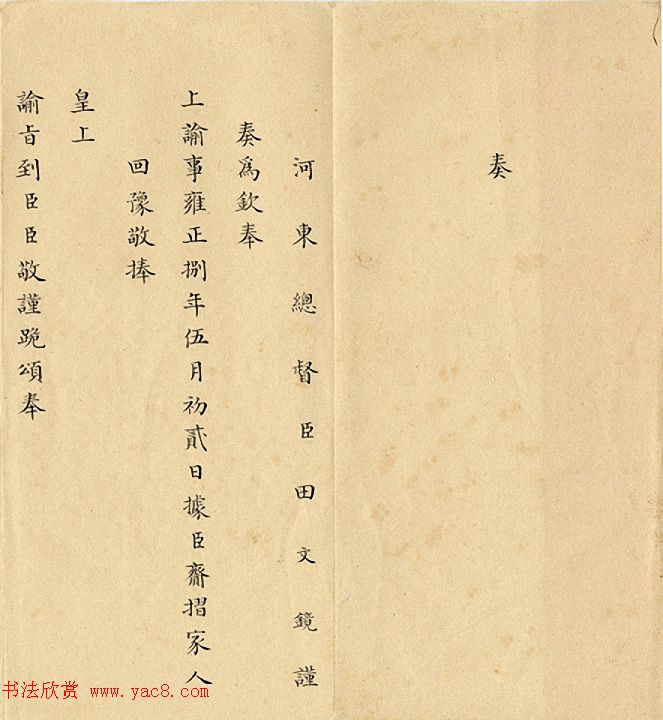 奏
河東總督臣田文鏡謹
奏爲欽奉
上諭事雍正捌年伍月初貳日據臣齎摺家人
回豫敬捧
皇上
諭旨到臣臣敬謹跪頌奉
书法欣赏 www.yac8.com